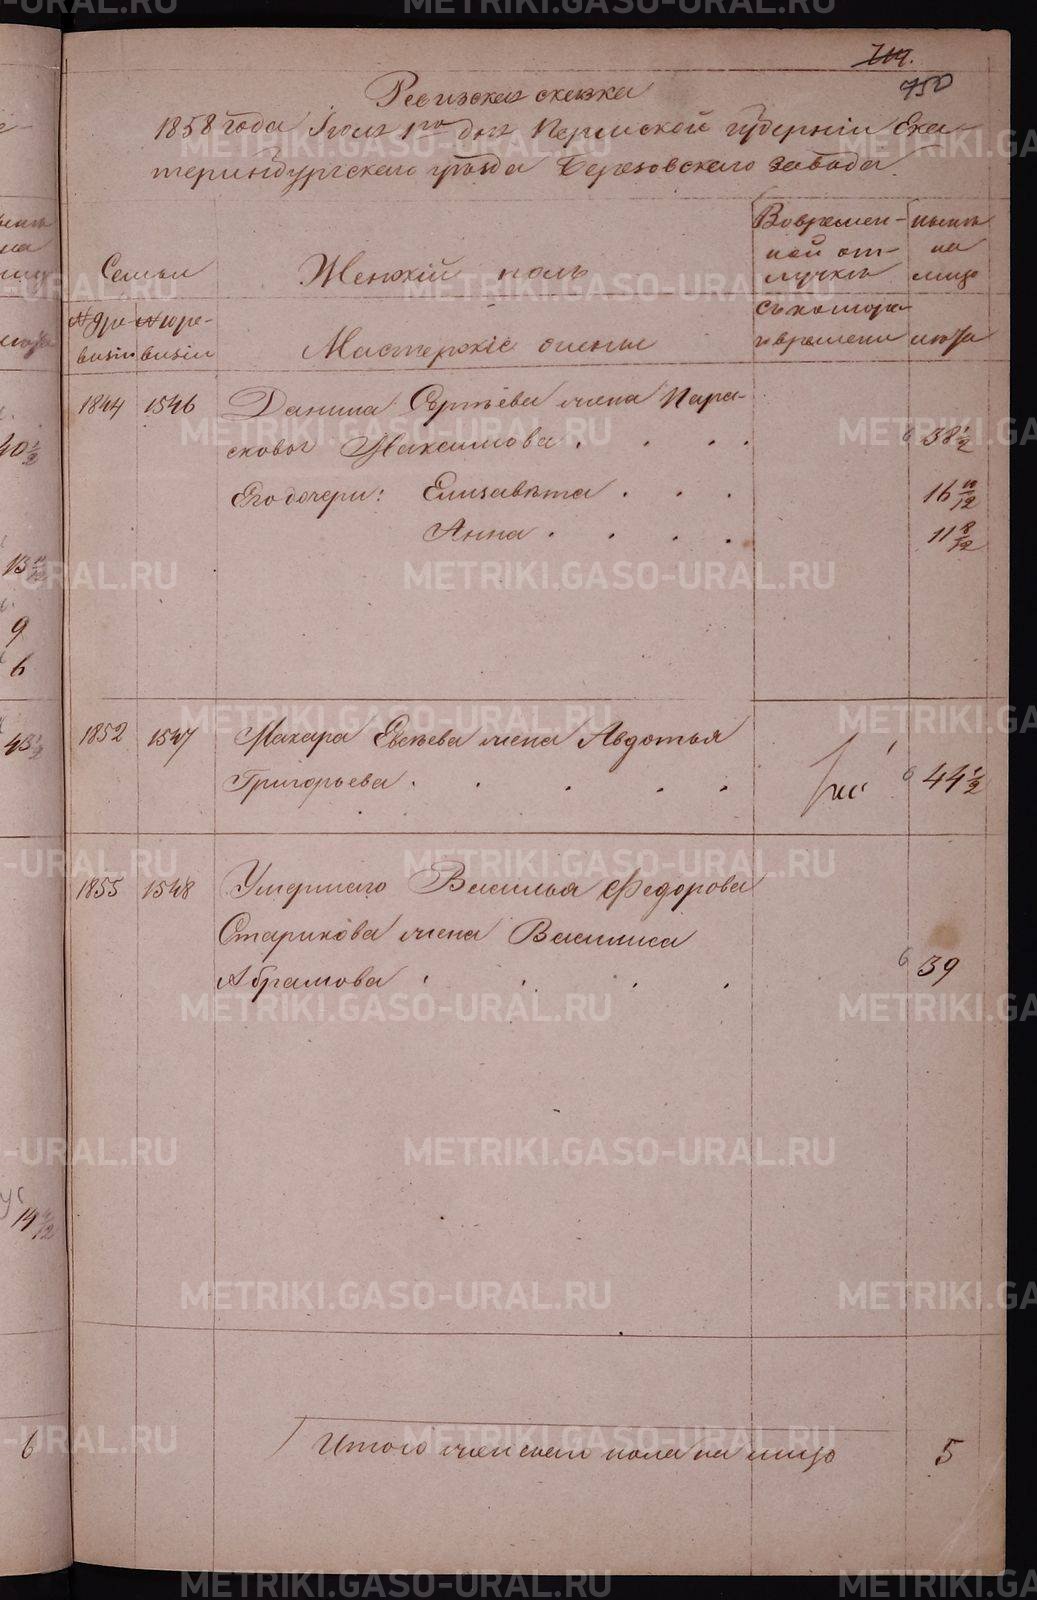 750
Ревизская сказка
1858 года Июля 1го дня Пермской губерніи Ека-
теринбургскаго уѣзда Березовскаго завода.
Семьи
Женскій полъ
Вовремен-
ной от-
лучкѣ
нынѣ
на
лицо
№ дре-
визіи
№ поре-
визіи
Мастерскіе жены
Съкотора-
го времени
лѣта
1844 1546 Данила Сергѣева жена Пара-
сковья Максимова . . . . 38 1/2
Его дочери: Елизавѣта . . . 16 10/12
Анна . . . . 11 8/12
1852 1547 Макара Евсѣева жена Авдотья
Григорьева . . . . . 44 1/2
1855 1548 Умершаго Василья Федорова
Старикова жена Василиса
Абрамова . . . . 39
Итого женскаго пола на лицо 5
40 1/2
13
9
6
43 1/2
14
6
METRIKI.GASO-URAL.RU